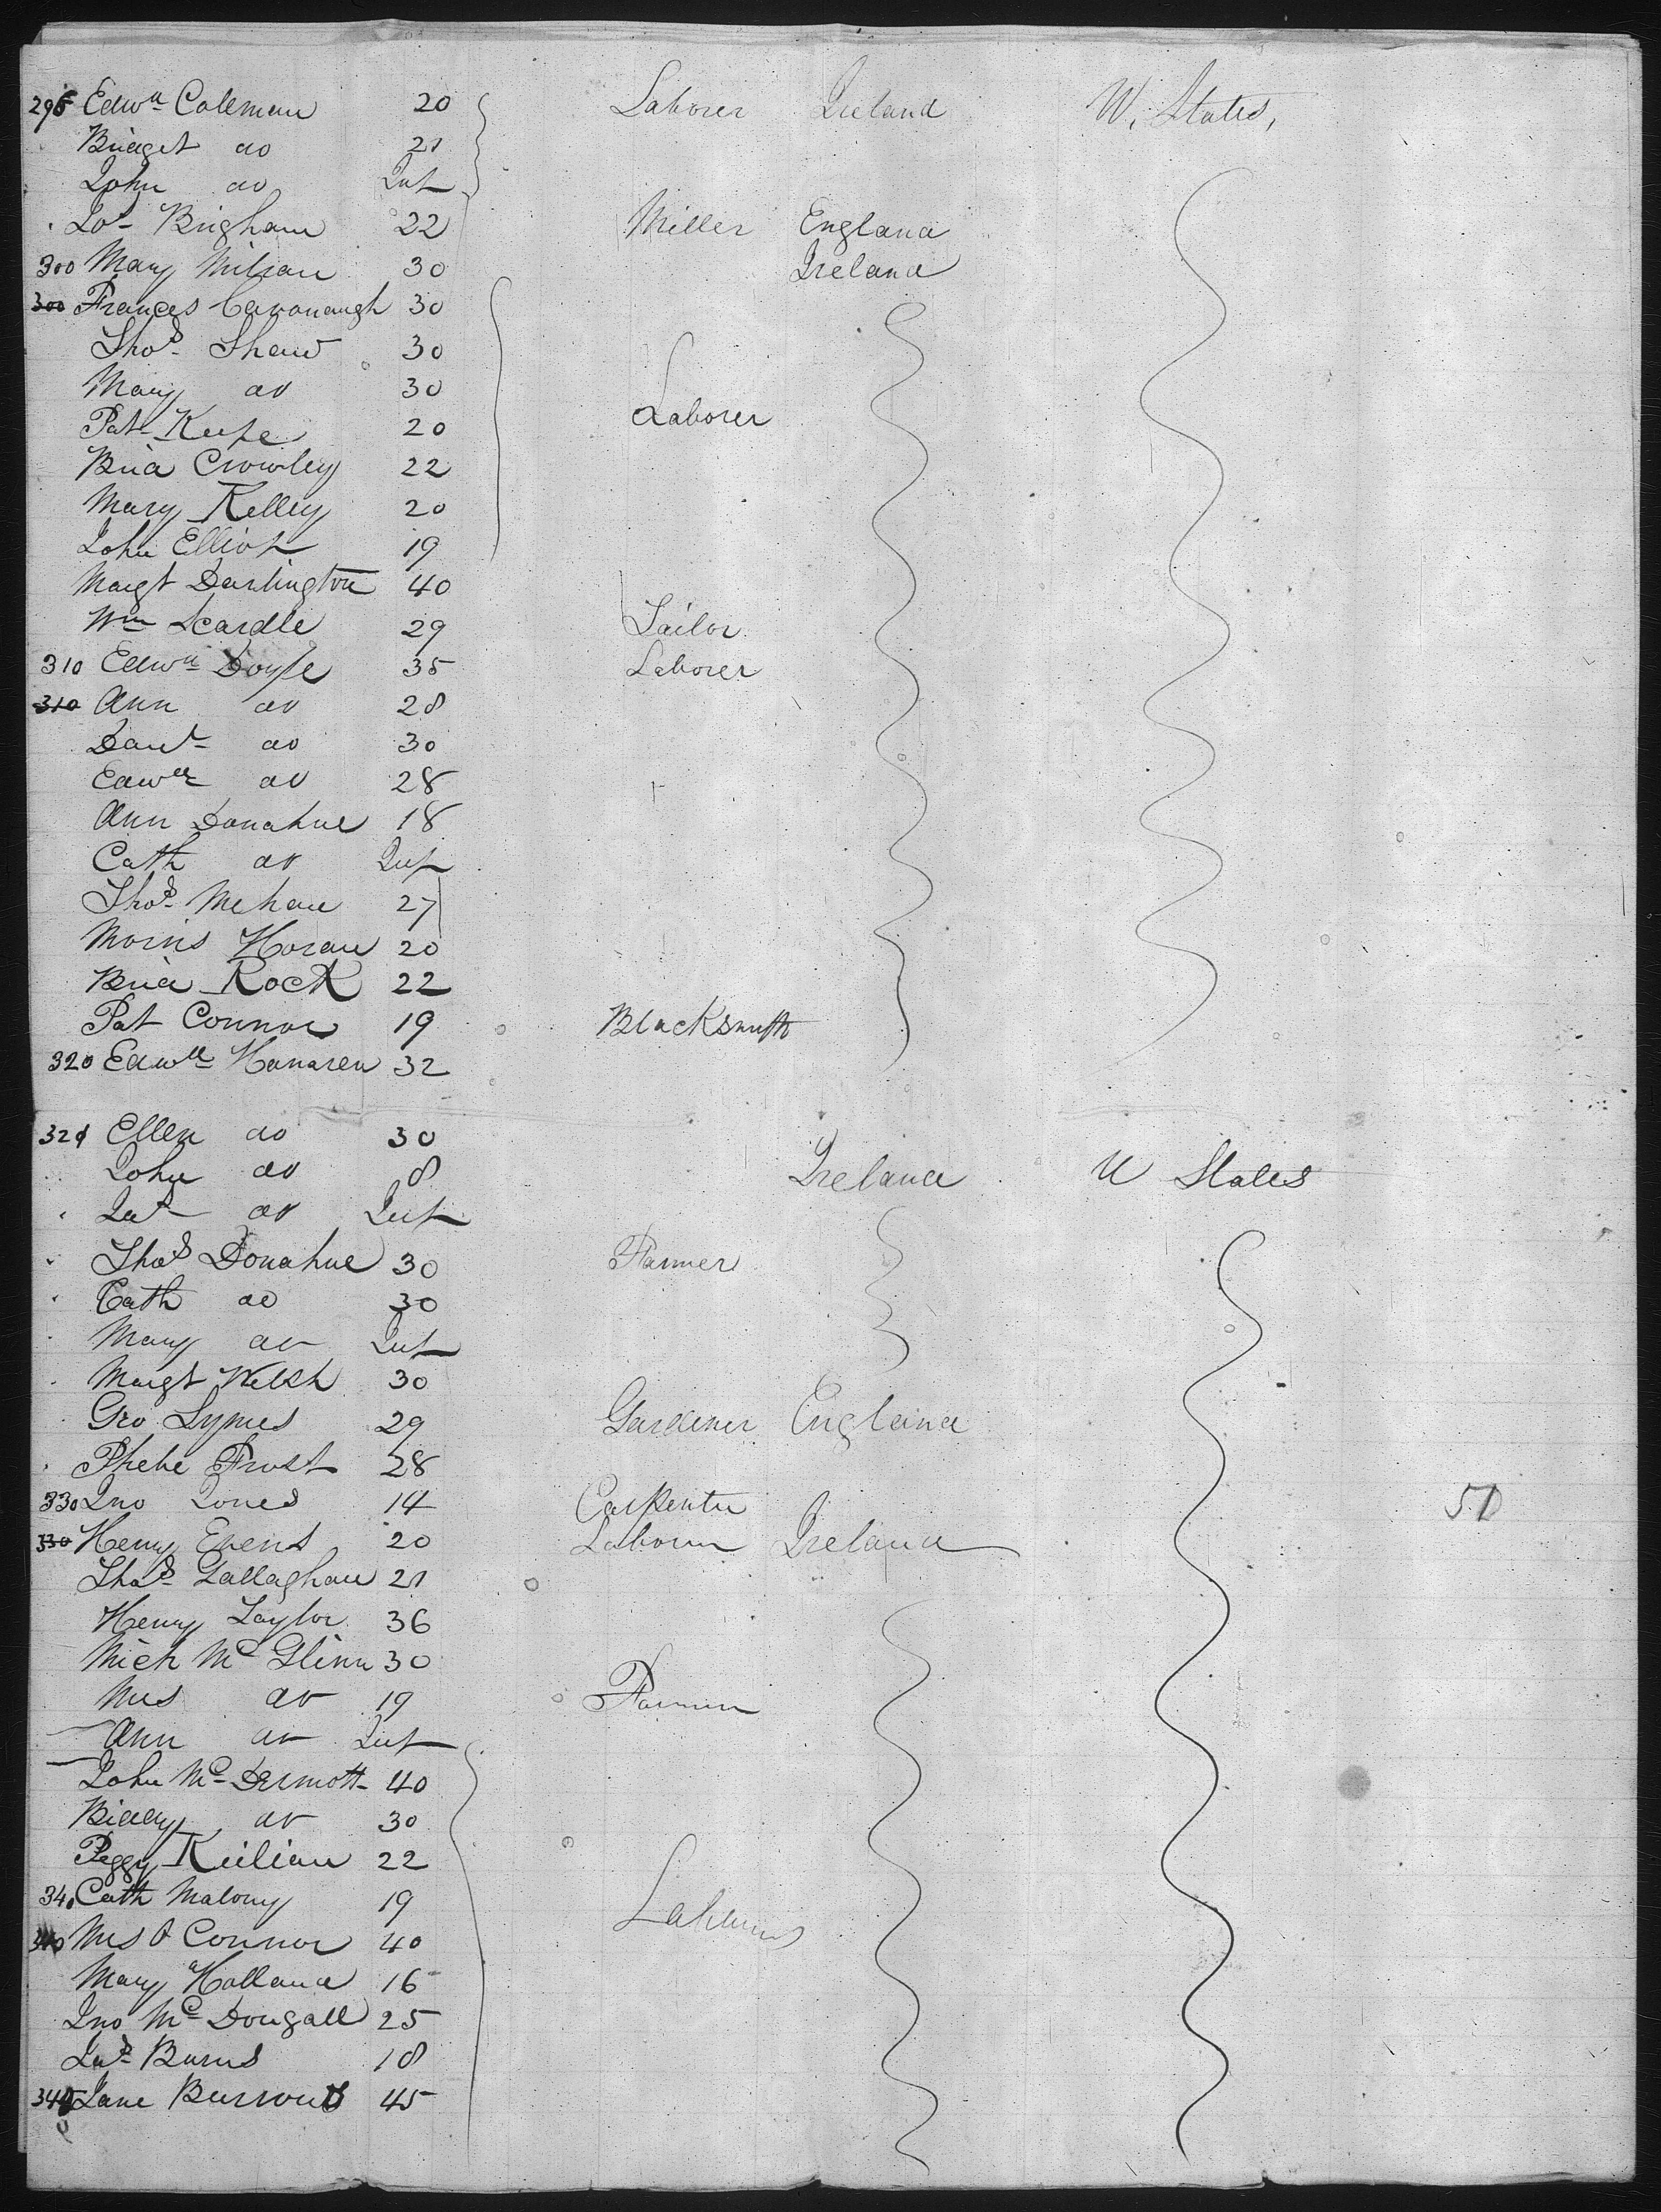 296 Edwd Coleman 20 Laborer Ireland U. States,
Bridget do 21
John do Inf
Jos Brigham 22 Miller England
300 Mary Milian 30 Ireland
300 Frances Cavanaugh 30
Thos Shaw 30
Mary do 30
Pat Keefe 20 Laborer
Brid Crowley 22
Mary Kelley 20
John Elliot 19
Margt Darlington 40
Wm Scardle 29 Tailor
310 Edwd Doyle 35 Laborer
310 Ann do 28
Danl do 30
Edwd do 28
Ann Donahue 18
Cath do Inf
Thos Mehan 27
Morris Horan 20
Brid Rock 22
Pat Connor 19 Blacksmith
320 Edwd Hanaren 32
321 Ellen do 30
John do 8 Ireland U States
Jas do Inf
Thos Donahue 30 Farmer
Cath do 30
Mary do Inf
Margt Welsh 30
Geo Symes 29 Gardener England
Phebe Frost 28
330 Jno Jones 14 Carpenter 51
330 Henry Evens 20 Laborer Ireland
Thos Gallaghan 21
Henry Taylor 36
Mich Mc Glinn 30
Mrs do 19 Farmer
Ann do Inf
John Mc Dermott 40
Biddy do 30
Peggy Keilian 22
340 Cath Malony 19 Laborers
340 Mrs O Connor 40
Mary Holland 16
Jno Mc Dougall 25
Jas Burns 18
345 Jane Burrows 45